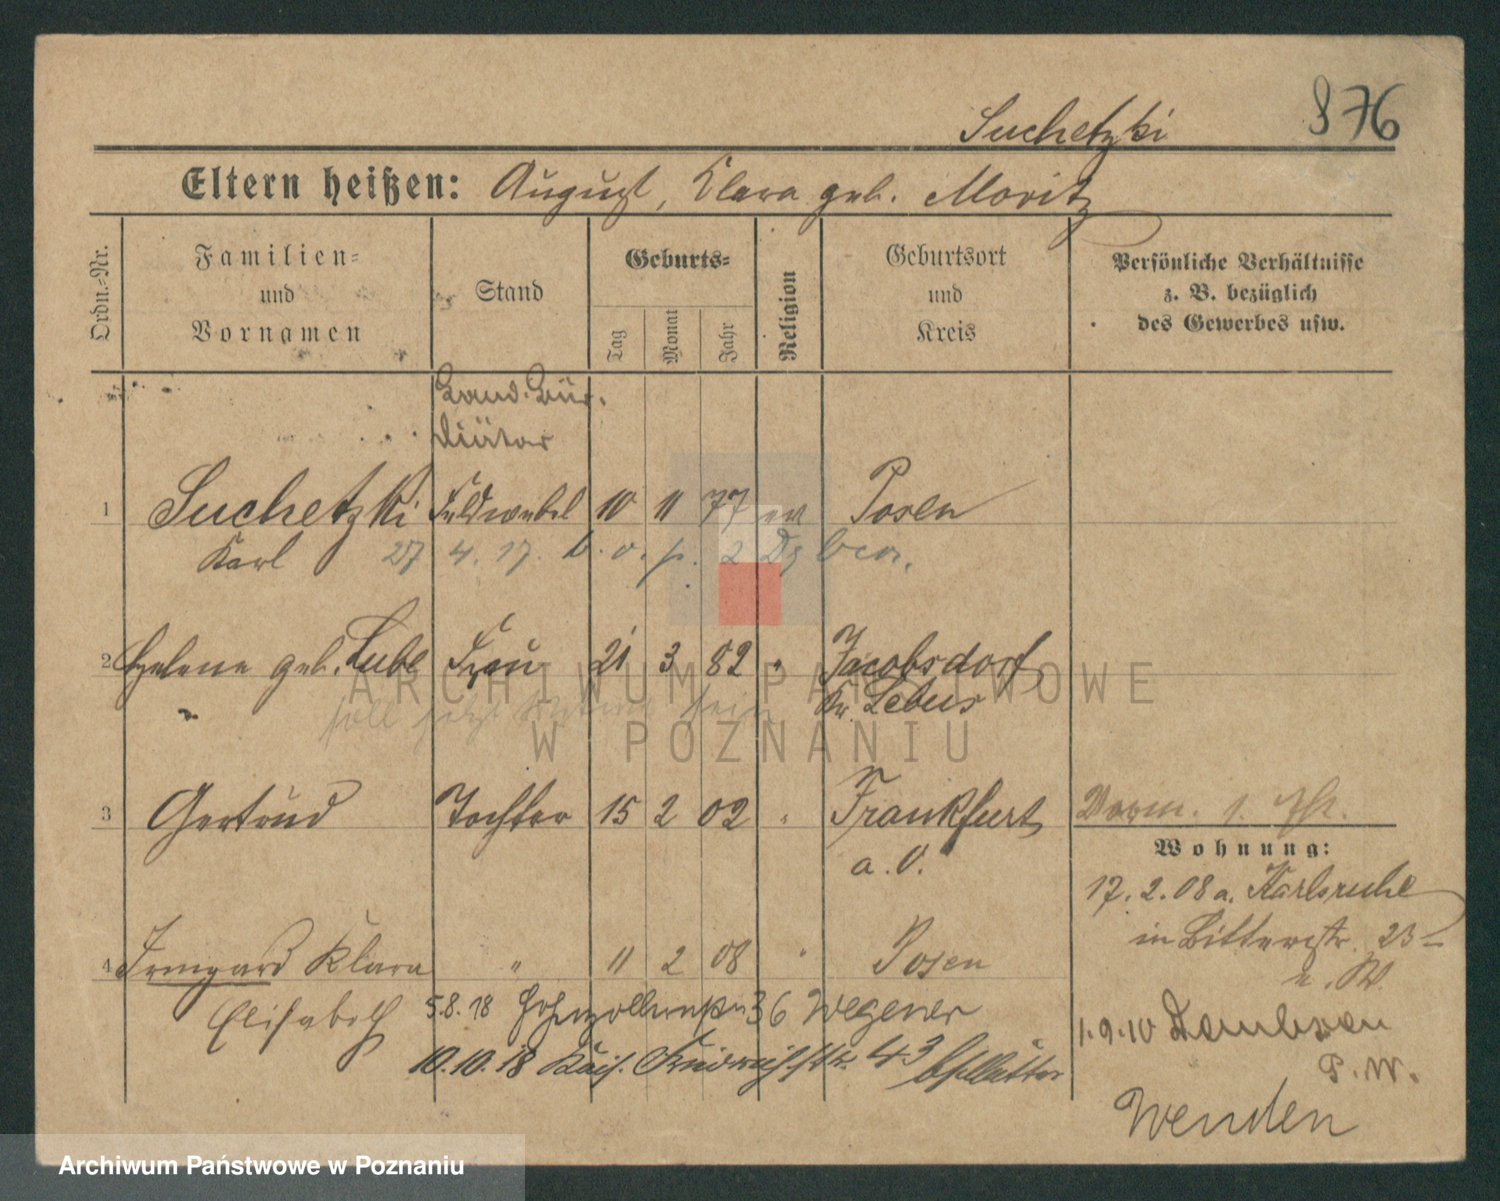 Suchetzki 876
Eltern heißen: August, Klara geb. Moritz
Ordn.-Nr.
Familien- und Vornamen
Stand
Geburts-
Tag Monat Jahr
Religion
Geburtsort und Kreis
Persönliche Verhältnisse
z. B. bezüglich
des Gewerbes usw.
Diätar
1 Suchetzki Feldwebel 10 11 77 ev Posen
Karl 27 4. 17. v. o. p.
2 Helene geb. Lube Frau 21 3 82 " Jacobsdorf,
Kr. Lebus
soll jetzt sein
3 Gertrud Tochter 15 2 02 " Frankfurt
a. O.
4 Irmgard Klara " 11 2 08 " Posen
Elisabeth
5.8.18 Hohenzollernstr 36 Wegener
10.10.18 Kais. Friedrichstr. 43
Wohnung:
17. 2. 08 a. Karlsruhe
in 23
1.9.10 Dembsen
P. W.
Wenden
ARCHIWUM PAŃSTWOWE
W POZNANIU
Archiwum Państwowe w Poznaniu